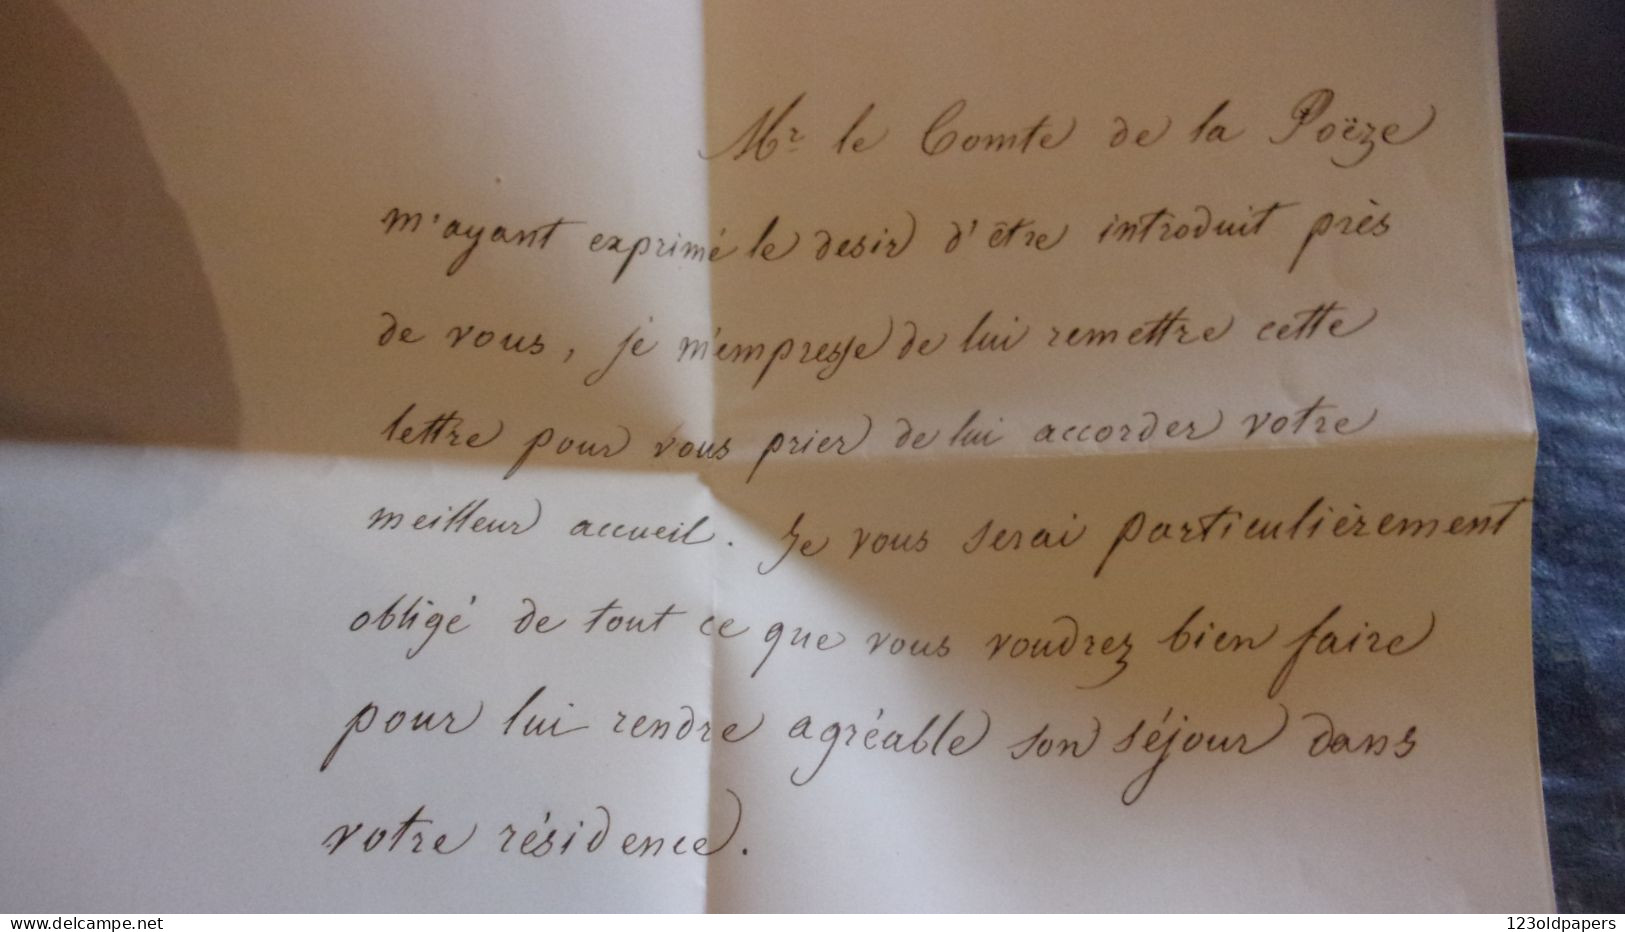 Mr le Comte de la Poëze
m'ayant exprimé le desir d'être introduit près
de vous, je m'empresse de lui remettre cette
lettre pour vous prier de lui accorder votre
meilleur accueil. Je vous serai particulièrement
obligé de tout ce que vous voudrez bien faire
pour lui rendre agréable son séjour dans
votre résidence.
www.delcampe.net
123oldpapers